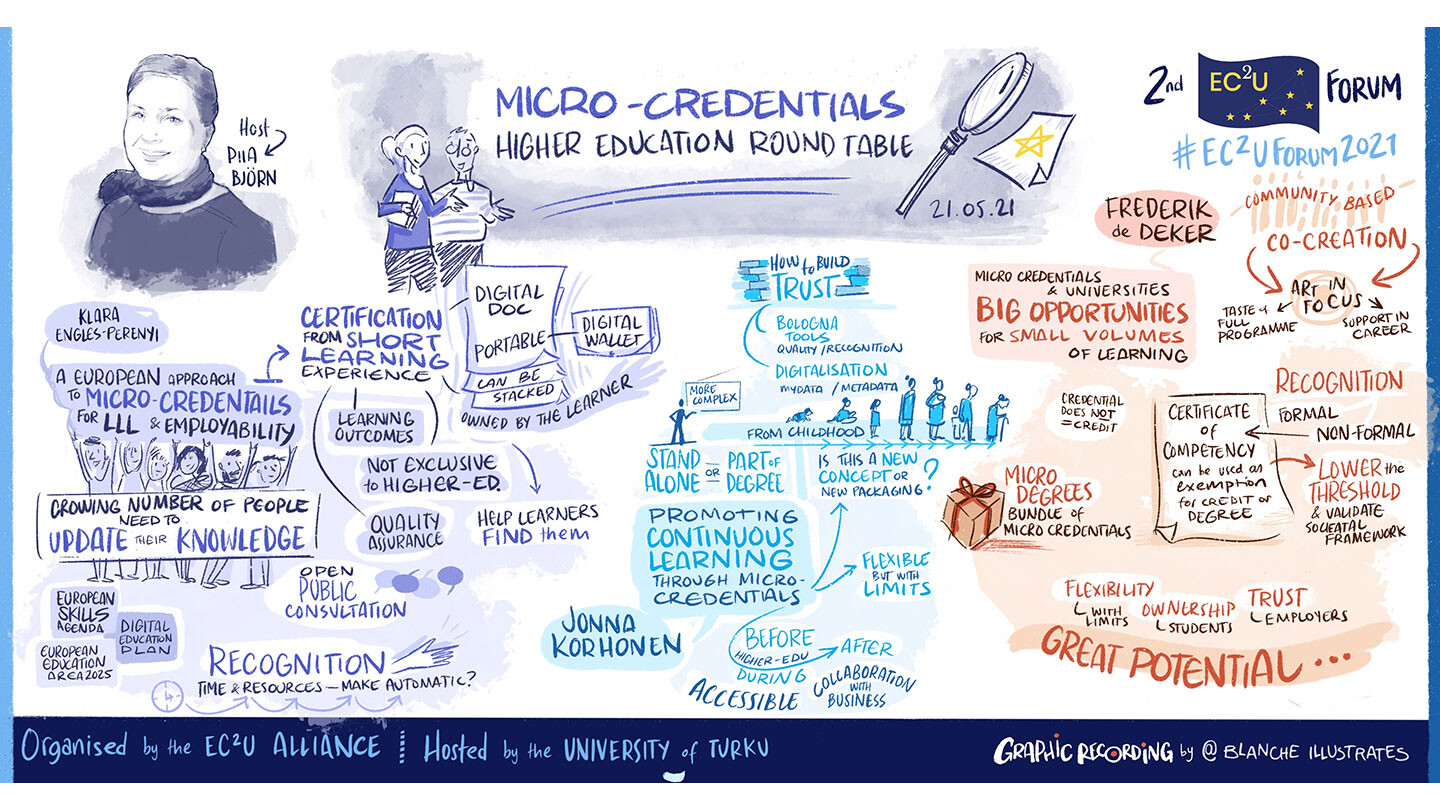 MICRO-CREDENTIALS
HIGHER EDUCATION ROUND TABLE
21.05.21
Host
PIIA
BJÖRN
2nd EC²U FORUM
#EC²UFORUM2021
KLARA
ENGLES-PERENYI
A EUROPEAN APPROACH
TO MICRO-CREDENTAILS
FOR LLL & EMPLOYABILITY
GROWING NUMBER OF PEOPLE
NEED TO
UPDATE THEIR KNOWLEDGE
EUROPEAN
SKILLS
AGENDA
DIGITAL
EDUCATION
PLAN
EUROPEAN
EDUCATION
AREA 2025
CERTIFICATION
FROM SHORT
LEARNING
EXPERIENCE
DIGITAL
DOC
PORTABLE
DIGITAL
WALLET
CAN BE
STACKED
OWNED BY THE LEARNER
LEARNING
OUTCOMES
NOT EXCLUSIVE
TO HIGHER-ED.
QUALITY
ASSURANCE
HELP LEARNERS
FIND them
OPEN
PUBLIC
CONSULTATION
RECOGNITION
TIME & RESOURCES - MAKE AUTOMATIC?
HOW to BUILD
TRUST
BOLOGNA
TOOLS
QUALITY/RECOGNITION
DIGITALISATION
MYDATA / METADATA
MORE
COMPLEX
FROM CHILDHOOD
STAND
ALONE
OR
PART OF
DEGREE
IS THIS A NEW
CONCEPT OR
NEW PACKAGING?
PROMOTING
CONTINUOUS
LEARNING
THROUGH MICRO-
CREDENTIALS
FLEXIBLE
BUT WITH
LIMITS
JONNA
KORHONEN
BEFORE
HIGHER-EDU
DURING
AFTER
ACCESSIBLE
COLLABORATION
WITH
BUSINESS
FREDERIK
de DEKER
MICRO CREDENTIALS
& UNIVERSITIES
BIG OPPORTUNITIES
FOR SMALL VOLUMES
OF LEARNING
COMMUNITY BASED
CO-CREATION
ART IN
FOCUS
TASTE →
FULL
PROGRAMME
SUPPORT IN
CAREER
CREDENTIAL
DOES NOT
= CREDIT
CERTIFICATE
of
COMPETENCY
can be used as
exemption
for CREDIT or
DEGREE
RECOGNITION
FORMAL
NON-FORMAL
LOWER the
THRESHOLD
& VALIDATE
SOCIEATAL
FRAMEWORK
MICRO
DEGREES
BUNDLE of
MICRO CREDENTIALS
FLEXIBILITY
WITH
LIMITS
OWNERSHIP
STUDENTS
TRUST
EMPLOYERS
GREAT POTENTIAL...
Organised by the EC²U ALLIANCE
Hosted by the UNIVERSITY of TURKU
GRAPHIC RECORDING by @BLANCHE ILLUSTRATES